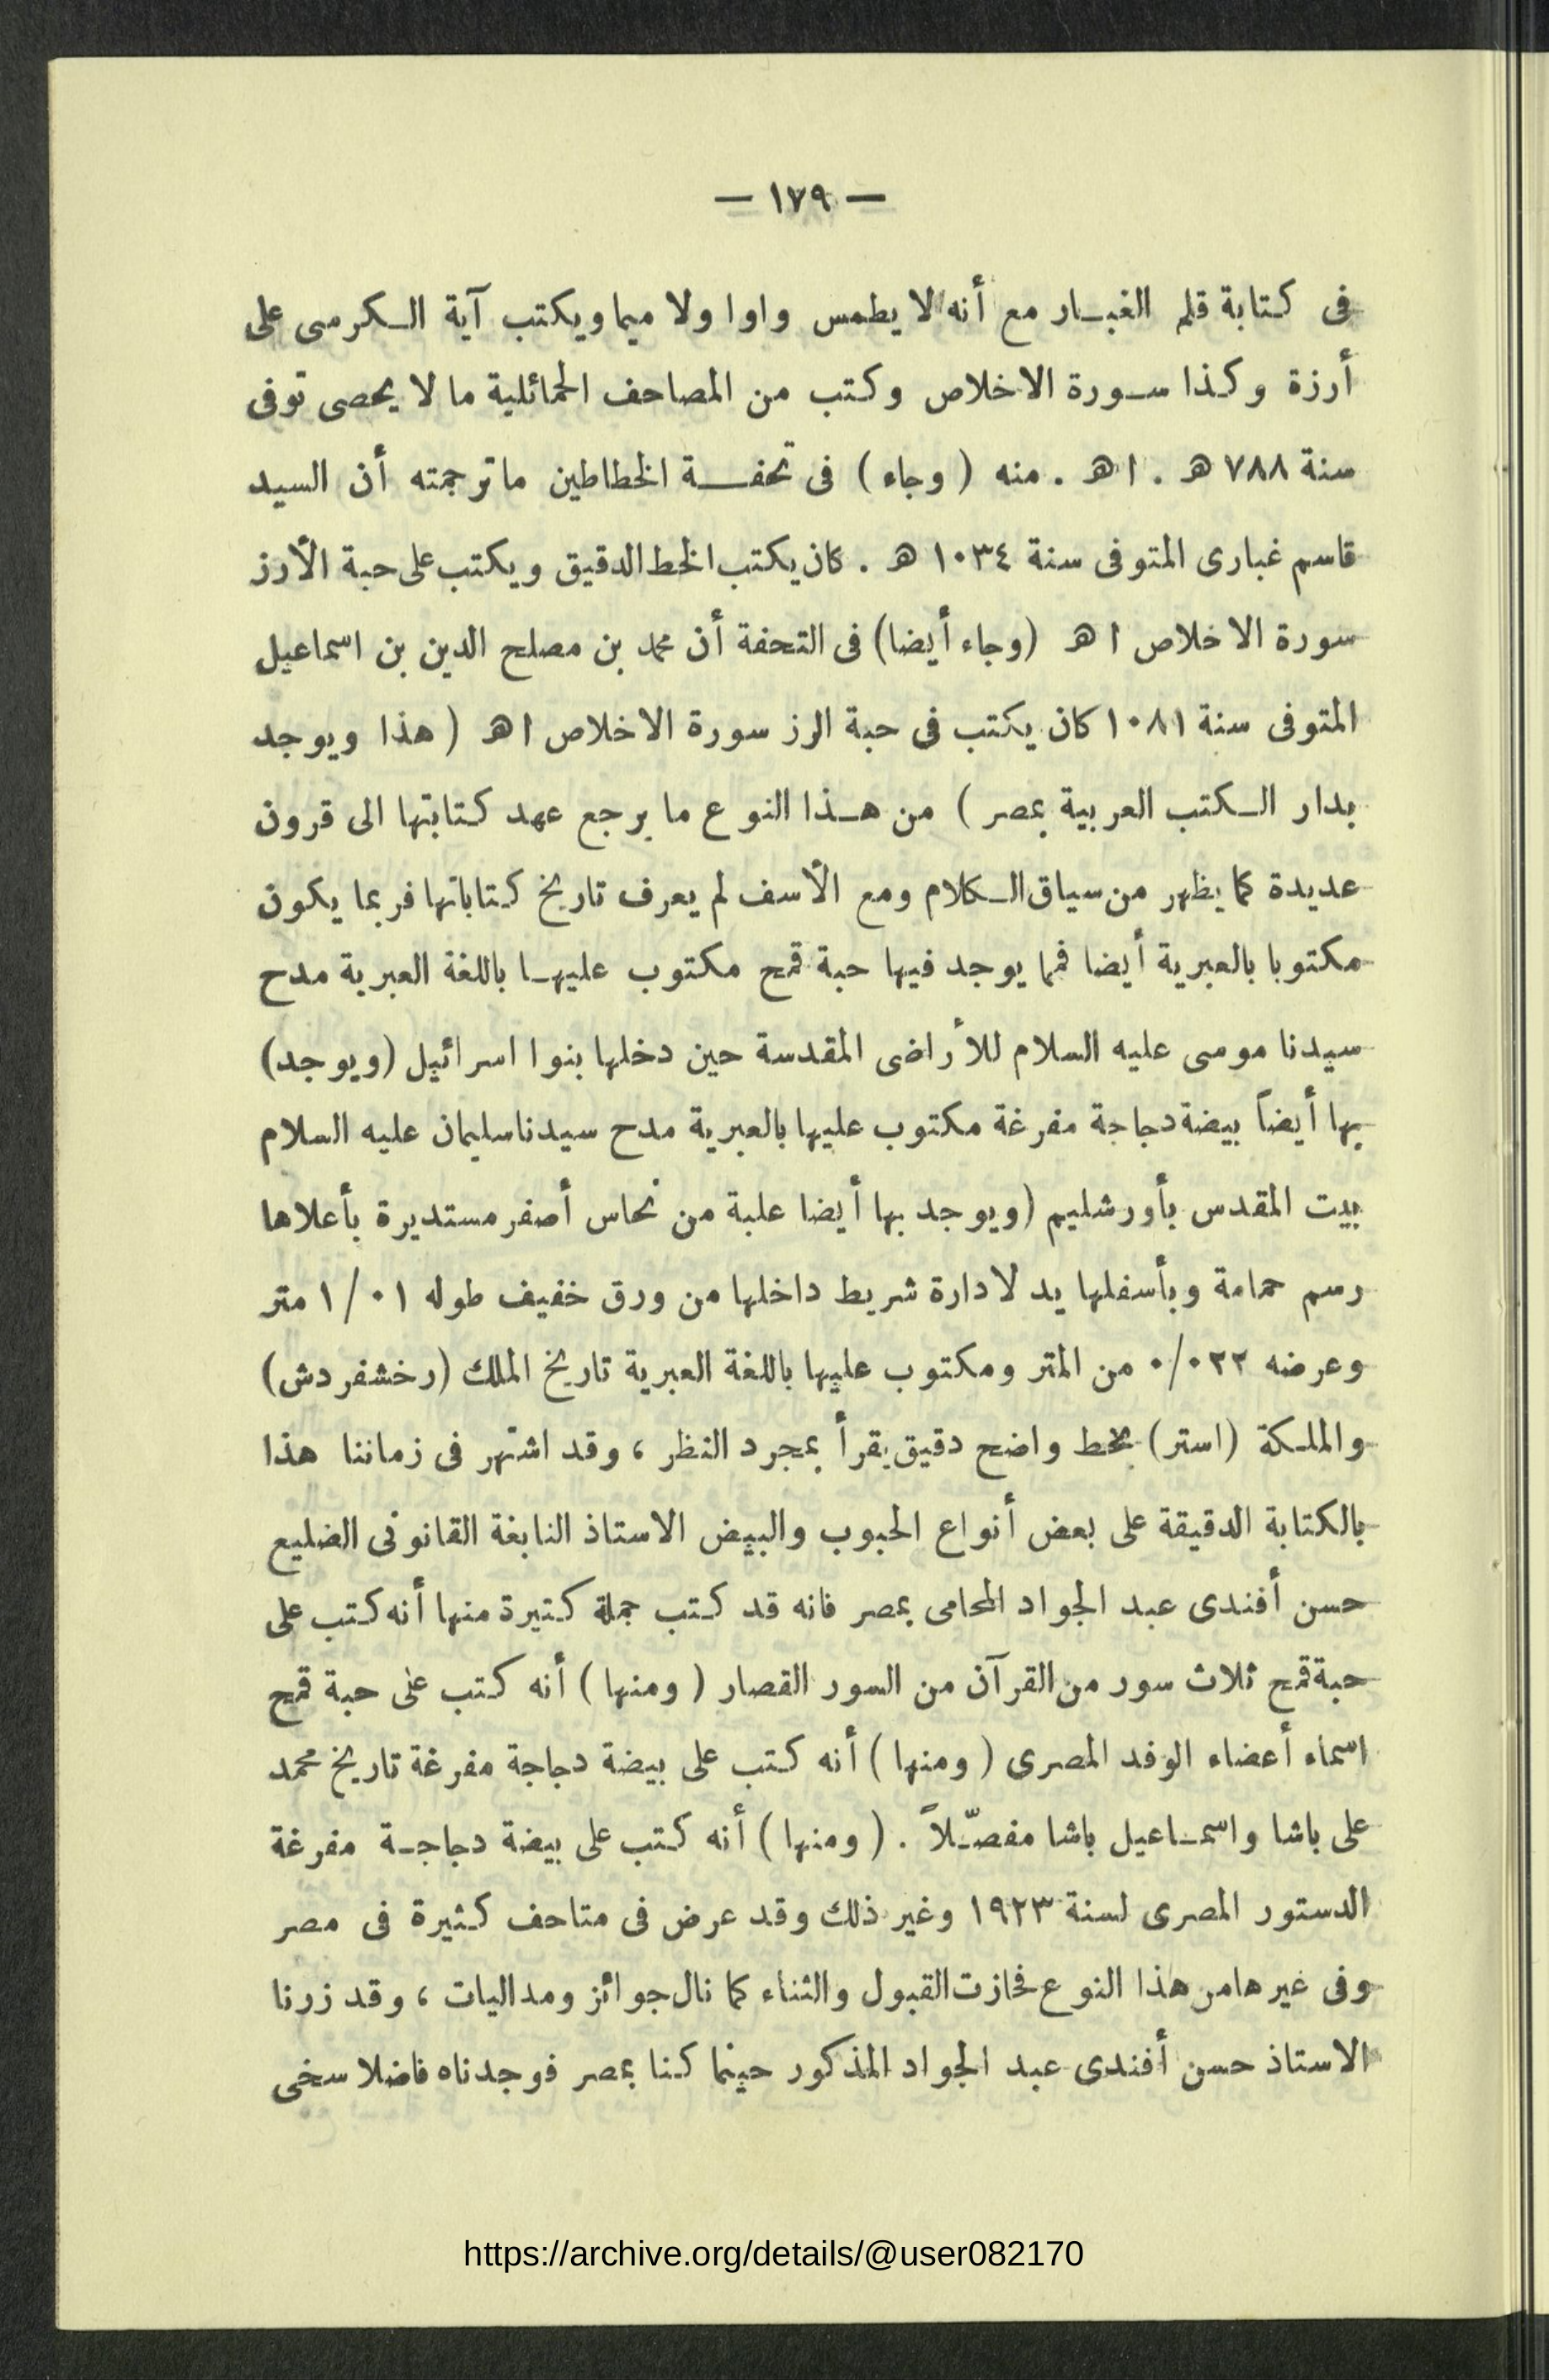 — ١٧٩ —
فى كتابة قلم الغبـار مع أنه لا يطمس واوا ولا ميما ويكتب آية الـكرسى على
أرزة وكذا سـورة الاخلاص وكتب من المصاحف الحمائلية ما لا يحصى توفى
سنة ٧٨٨ هـ . ا هـ . منه ( وجاء ) فى تحفـة الخطاطين ماترجمته أن السيد
قاسم غبارى المتوفى سنة ١٠٣٤ هـ . كان يكتب الخط الدقيق ويكتب على حبة الأرز
سورة الاخلاص ا هـ (وجاء أيضا) فى التحفة أن محمد بن مصلح الدين بن اسماعيل
المتوفى سنة ١٠٨١ كان يكتب فى حبة الرز سورة الاخلاص اهـ ( هذا ويوجد
بدار الـكتب العربية بمصر ) من هـذا النوع ما يرجع عهد كتابتها الى قرون
عديدة كما يظهر من سياق الـكلام ومع الأسف لم يعرف تاريخ كتاباتها فربما يكون
مكتوبا بالعبرية أيضا فمما يوجد فيها حبة قمح مكتوب عليهـا باللغة العبرية مدح
سيدنا موسى عليه السلام للأراضى المقدسة حين دخلها بنوا اسرائيل (ويوجد)
بها أيضاً بيضة دجاجة مفرغة مكتوب عليها بالعبرية مدح سيدنا سليمان عليه السلام
بيت المقدس بأورشليم (ويوجد بها أيضا علبة من نحاس أصفر مستديرة بأعلاها
رسم حمامة وبأسفلها يد لادارة شريط داخلها من ورق خفيف طوله ١/٠١ متر
وعرضه ٠/٠٢٢ من المتر ومكتوب عليها باللغة العبرية تاريخ الملك (رخشفردش)
والملـكة (استر) بخط واضح دقيق يقرأ بمجرد النظر ، وقد اشتهر فى زماننا هذا
بالكتابة الدقيقة على بعض أنواع الحبوب والبيض الاستاذ النابغة القانونى الضليع
حسن أفندى عبد الجواد المحامى بمصر فانه قد كتب جملة كتيرة منها أنه كتب على
حبة قمح ثلاث سور من القرآن من السور القصار ( ومنها ) أنه كتب على حبة قمح
اسماء أعضاء الوفد المصرى ( ومنها ) أنه كتب على بيضة دجاجة مفرغة تاريخ محمد
على باشا واسمـاعيل باشا مفصّـلاً . ( ومنها ) أنه كتب على بيضة دجاجـة مفرغة
الدستور المصرى لسنة ١٩٢٣ وغير ذلك وقد عرض فى متاحف كثيرة فى مصر
وفى غيرها من هذا النوع فحازت القبول والثناء كما نال جوائز ومداليات ، وقد زرنا
الاستاذ حسن أفندى عبد الجواد المذكور حينما كنا بمصر فوجدناه فاضلا سخى
https://archive.org/details/@user082170